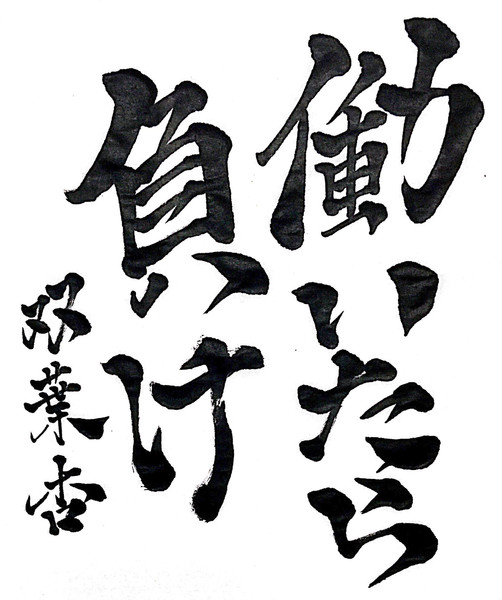 働いたら
負け
双葉杏